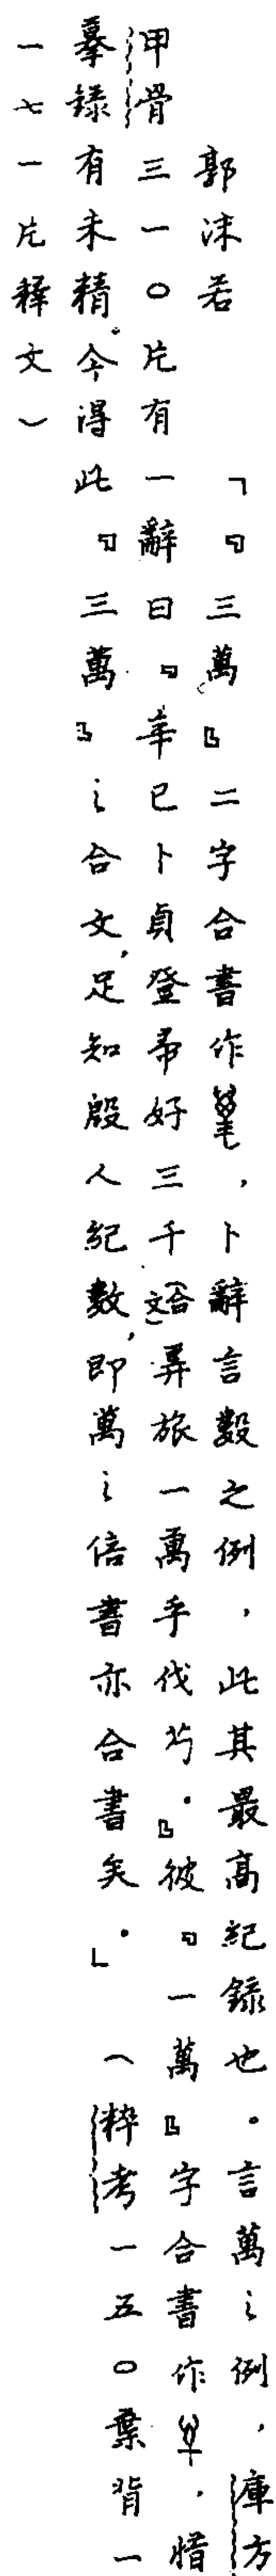 郭沫若　「『三萬』二字合書作，卜辭言數之例，此其最高紀錄也。言萬之例，庫方
甲骨三一〇片有一辭曰『辛巳卜貞登帚好三千（合文）登旅一萬乎伐。』彼『一萬』字合書作，惜
摹錄有未精。今得此『三萬』之合文，足知殷人紀數，即萬之倍書亦合書矣。」（粹考一五〇葉背一
一七一片釋文）